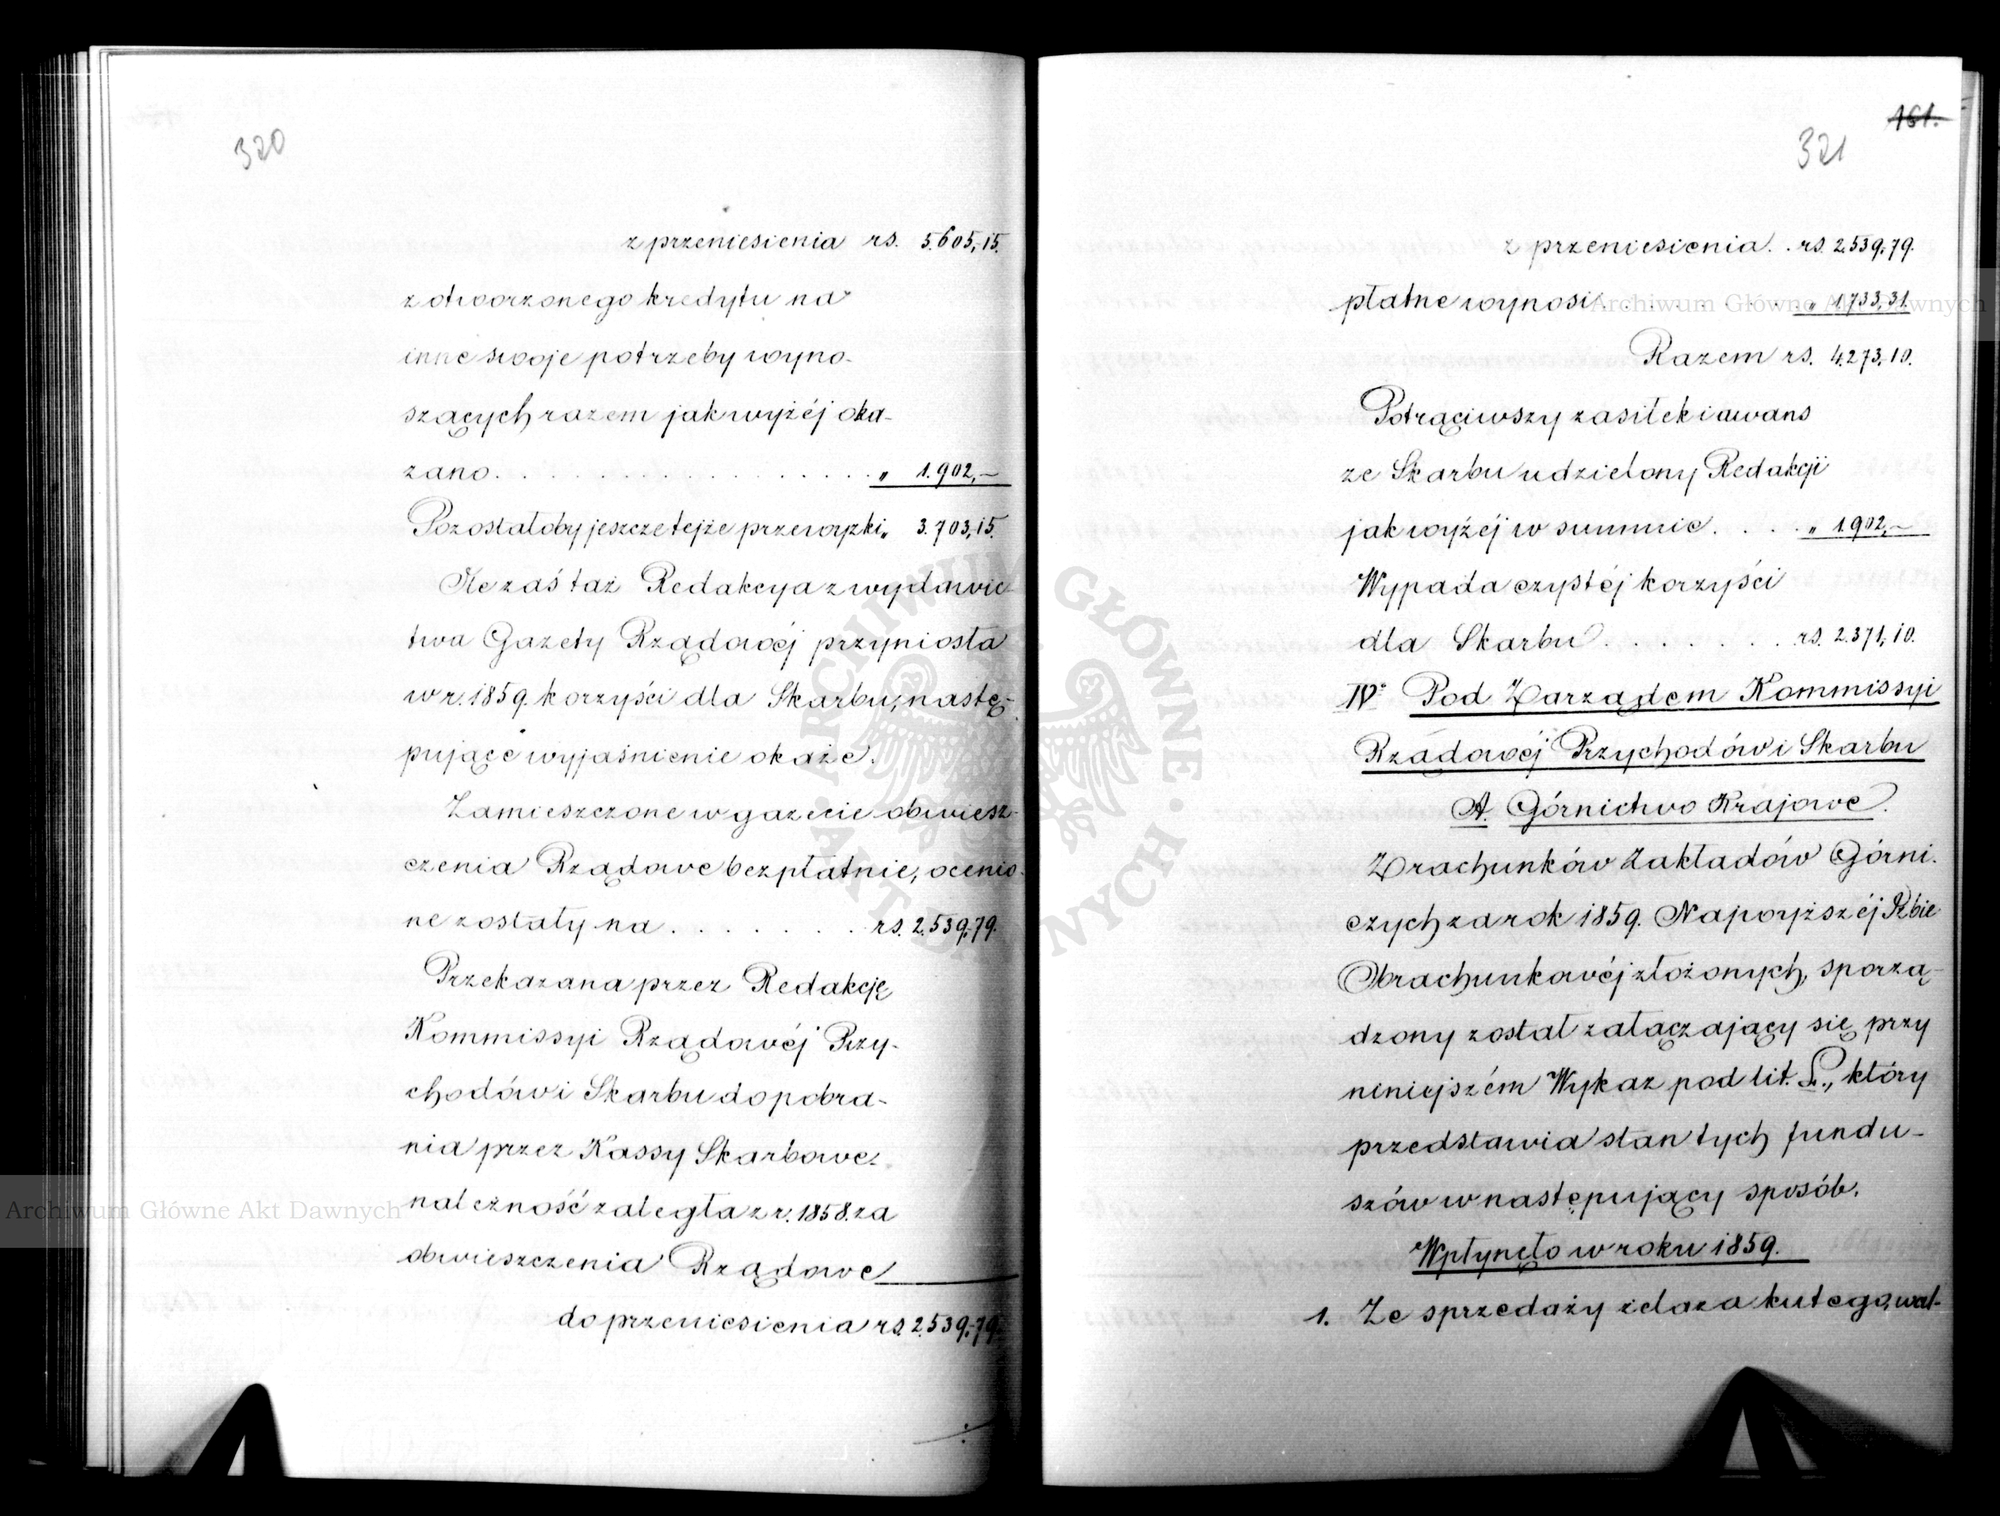 320
z przeniesienia rs. 5.605,15.
z otworzonego kredytu na
inne swoje potrzeby wyno-
szących razem jak wyżéj oka-
zano. . . . . . . . . . . . . . . . „ 1.902,—
Pozostałoby jeszcze tejże przewyżki „ 3.703,15.
Że zaś taż Redakcya z wydawnic-
twa Gazety Rządowéj przyniosła
w r. 1859. korzyści dla Skarbu, nastę-
pujące wyjaśnienie okaże.
Zamieszczone w gazecie obwiesz-
czenia Rządowe bezpłatnie, ocenio-
ne zostały na . . . . . . . . rs. 2.539,79.
Przekazana przez Redakcję
Kommissyi Rządowéj Przy-
chodów i Skarbu do pobra-
nia przez Kassy Skarbowe
należność zaległa z r. 1858. za
obwieszczenia Rządowe
do przeniesienia rs. 2.539,79.
161.
321
z przeniesienia . . rs. 2.539,79.
płatne wynosi . . . . . . . . „ 1.733,31.
Razem rs. 4.273,10.
Potrąciwszy zasiłek i awans
ze Skarbu udzielony Redakcji
jak wyżéj w summie . . . . „ 1902,—
Wypada czystéj korzyści
dla Skarbu . . . . . . . rs. 2.371,10.
IV° Pod Zarządem Kommissyi
Rządowéj Przychodów i Skarbu
A. Górnictwo Krajowe.
Z rachunków Zakładów Górni-
czych za rok 1859. Najwyższéj Izbie
Obrachunkowéj złożonych, sporzą-
dzony został załączający się przy
niniejszém Wykaz pod lit. L., który
przedstawia stan tych fundu-
szów w następujący sposób.
Wpłynęło w roku 1859.
1. Ze sprzedaży żelaza kutego, wal-
Archiwum Główne Akt Dawnych
Archiwum Główne Akt Dawnych
ARCHIWUM GŁÓWNE AKT DAWNYCH